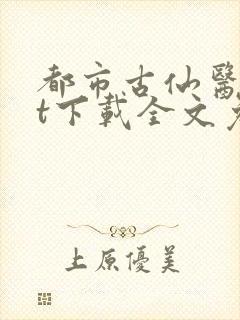 都市古仙醫
t下載全文
上原優美